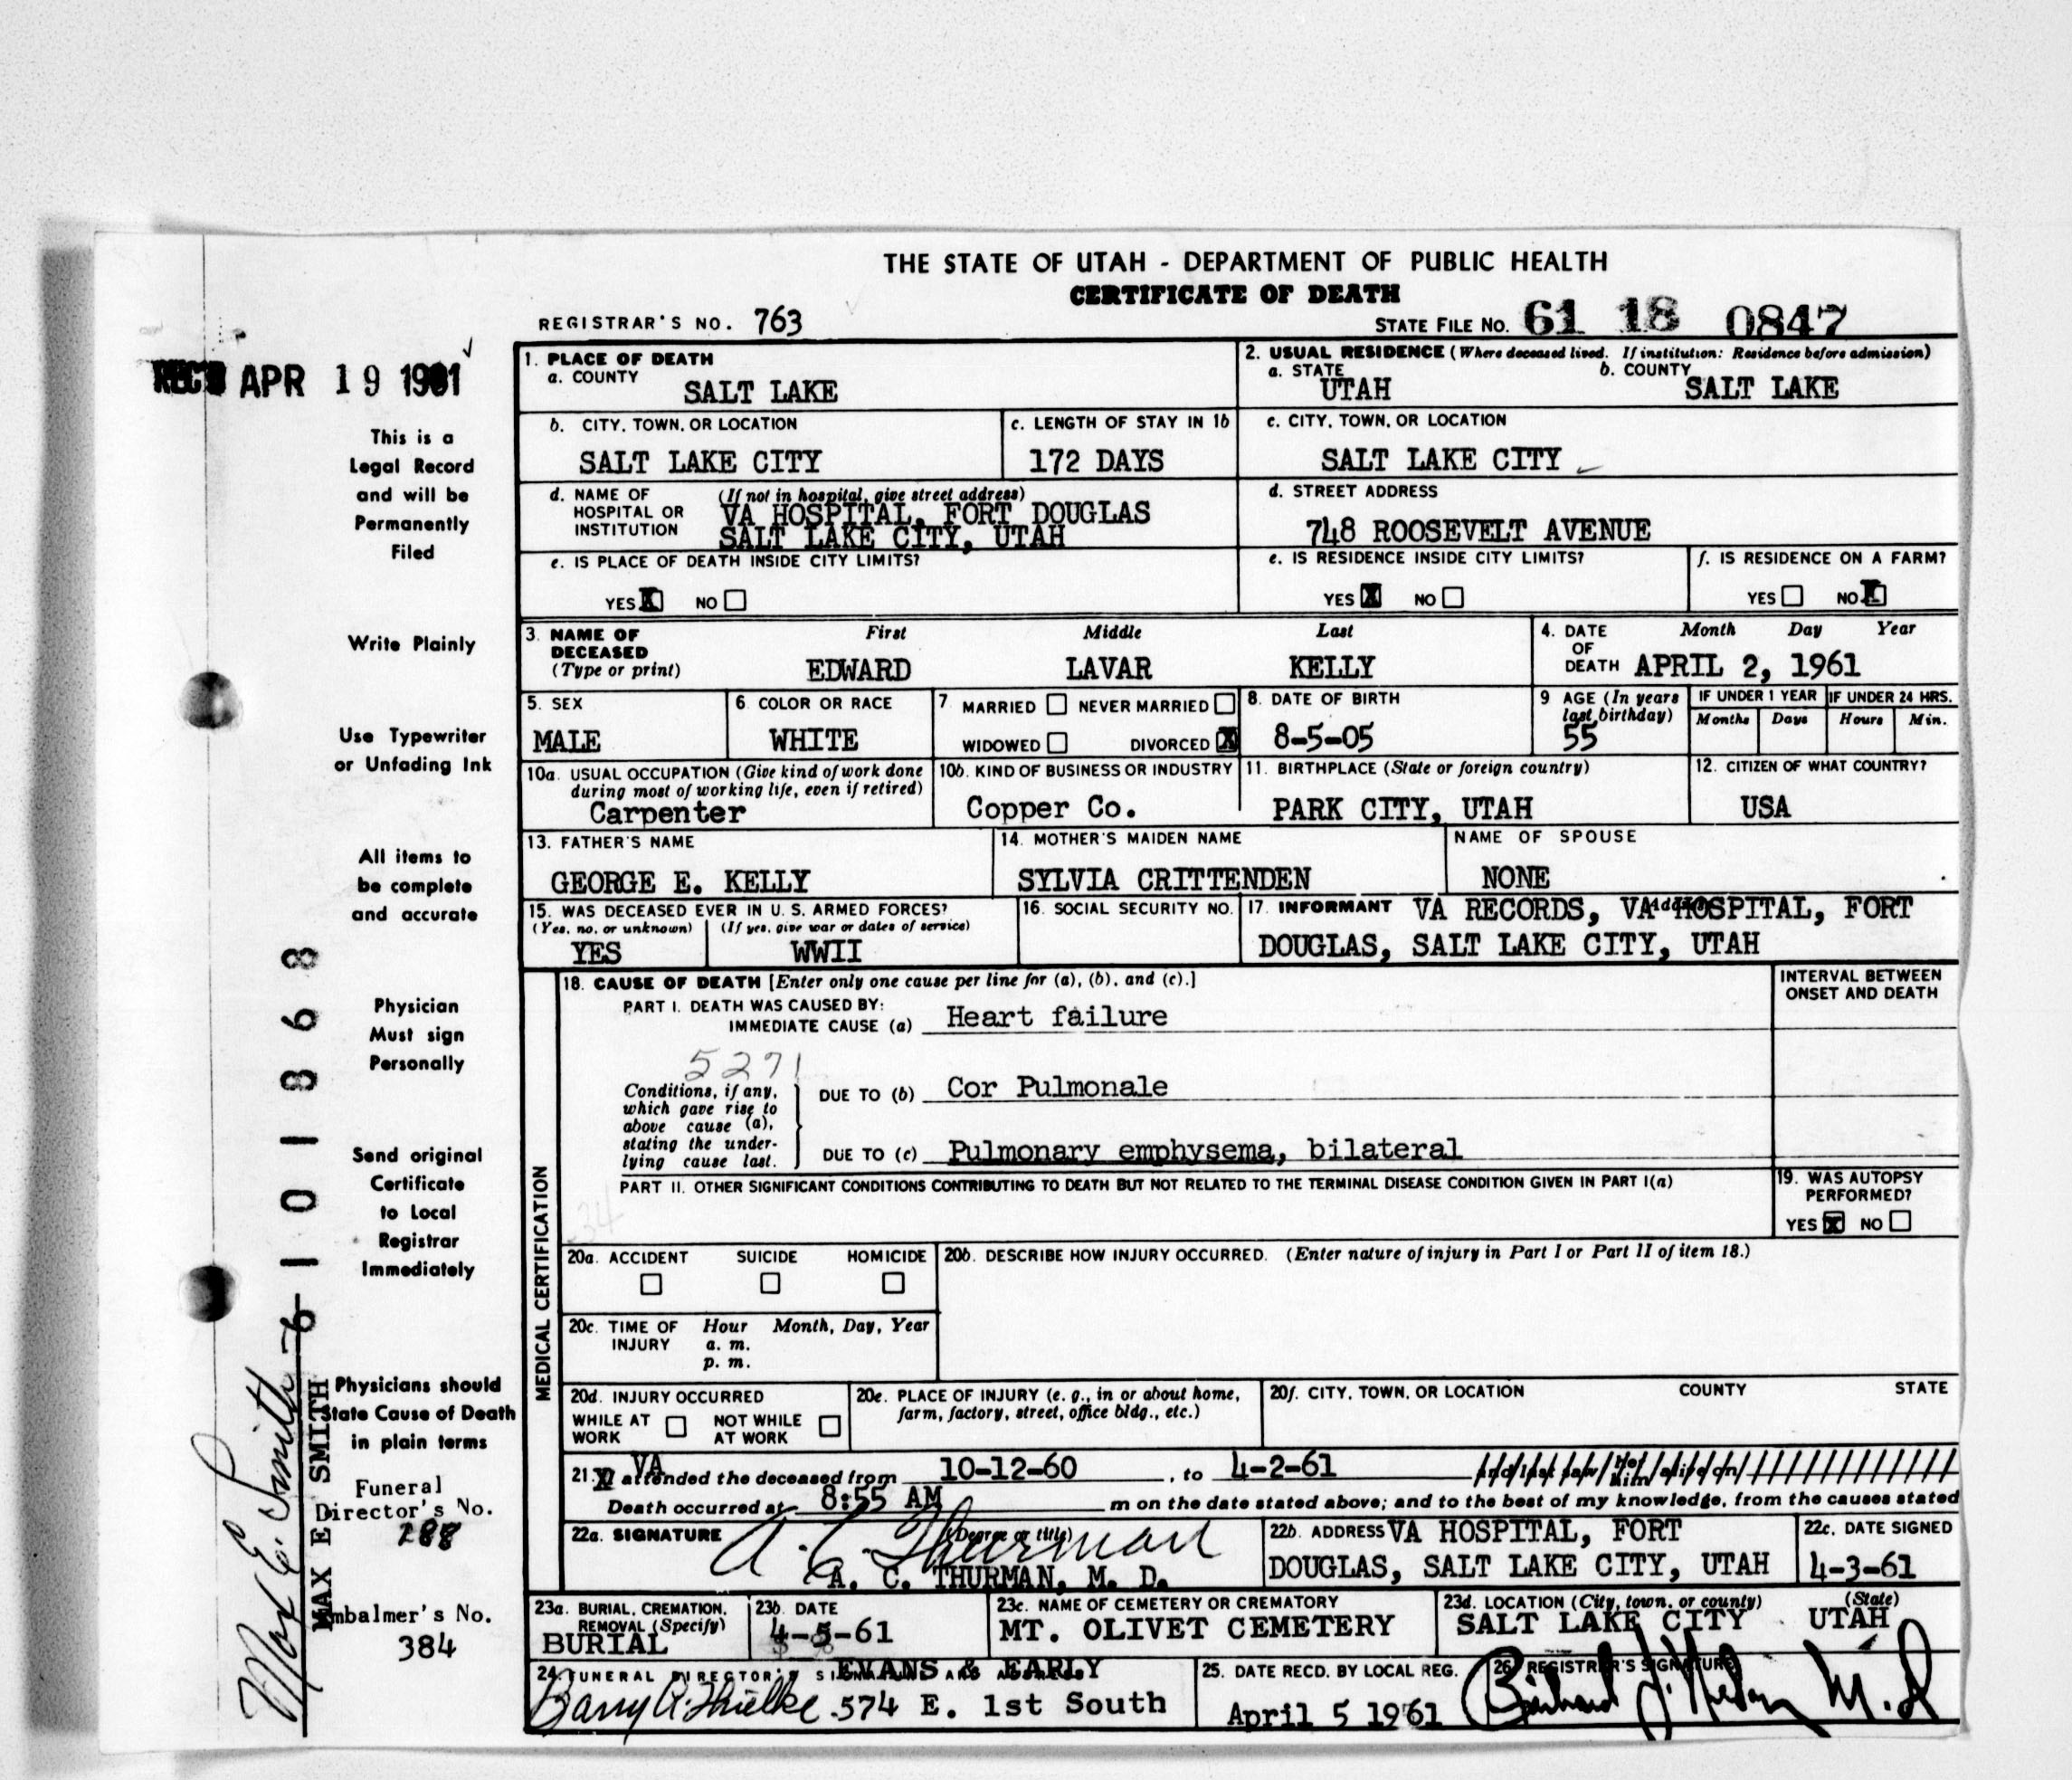 THE STATE OF UTAH - DEPARTMENT OF PUBLIC HEALTH
CERTIFICATE OF DEATH
REGISTRAR'S NO. 763
STATE FILE NO. 61 18 0847
REC'D APR 19 1961
This is a
Legal Record
and will be
Permanently
Filed
Write Plainly
Use Typewriter
or Unfading Ink
All items to
be complete
and accurate
Physician
Must sign
Personally
Send original
Certificate
to Local
Registrar
Immediately
Physicians should
State Cause of Death
in plain terms
Funeral
Director's No.
288
Embalmer's No.
384
6-101868
Max E. Smith
MAX E SMITH
1. PLACE OF DEATH
a. COUNTY SALT LAKE
2. USUAL RESIDENCE (Where deceased lived. If institution: Residence before admission)
a. STATE UTAH b. COUNTY SALT LAKE
b. CITY, TOWN, OR LOCATION SALT LAKE CITY
c. LENGTH OF STAY IN 1b 172 DAYS
c. CITY, TOWN, OR LOCATION SALT LAKE CITY
d. NAME OF HOSPITAL OR INSTITUTION (If not in hospital, give street address)
VA HOSPITAL, FORT DOUGLAS
SALT LAKE CITY, UTAH
d. STREET ADDRESS
748 ROOSEVELT AVENUE
e. IS PLACE OF DEATH INSIDE CITY LIMITS?
YES X NO
e. IS RESIDENCE INSIDE CITY LIMITS?
YES X NO
f. IS RESIDENCE ON A FARM?
YES NO X
3. NAME OF DECEASED (Type or print)
First Middle Last
EDWARD LAVAR KELLY
4. DATE OF DEATH Month Day Year
APRIL 2, 1961
5. SEX MALE
6. COLOR OR RACE WHITE
7. MARRIED NEVER MARRIED
WIDOWED DIVORCED X
8. DATE OF BIRTH 8-5-05
9 AGE (In years last birthday) 55
IF UNDER 1 YEAR Months Days
IF UNDER 24 HRS. Hours Min.
10a. USUAL OCCUPATION (Give kind of work done during most of working life, even if retired)
Carpenter
10b. KIND OF BUSINESS OR INDUSTRY
Copper Co.
11. BIRTHPLACE (State or foreign country)
PARK CITY, UTAH
12. CITIZEN OF WHAT COUNTRY?
USA
13. FATHER'S NAME
GEORGE E. KELLY
14. MOTHER'S MAIDEN NAME
SYLVIA CRITTENDEN
NAME OF SPOUSE
NONE
15. WAS DECEASED EVER IN U. S. ARMED FORCES?
(Yes, no, or unknown) (If yes, give war or dates of service)
YES WWII
16. SOCIAL SECURITY NO.
17. INFORMANT Address
VA RECORDS, VA HOSPITAL, FORT
DOUGLAS, SALT LAKE CITY, UTAH
MEDICAL CERTIFICATION
18. CAUSE OF DEATH [Enter only one cause per line for (a), (b), and (c).]
INTERVAL BETWEEN ONSET AND DEATH
PART I. DEATH WAS CAUSED BY:
IMMEDIATE CAUSE (a) Heart failure
5271
Conditions, if any, which gave rise to above cause (a), stating the underlying cause last.
DUE TO (b) Cor Pulmonale
DUE TO (c) Pulmonary emphysema, bilateral
PART II. OTHER SIGNIFICANT CONDITIONS CONTRIBUTING TO DEATH BUT NOT RELATED TO THE TERMINAL DISEASE CONDITION GIVEN IN PART I(a)
34
19. WAS AUTOPSY PERFORMED?
YES X NO
20a. ACCIDENT SUICIDE HOMICIDE
20b. DESCRIBE HOW INJURY OCCURRED. (Enter nature of injury in Part I or Part II of item 18.)
20c. TIME OF INJURY Hour Month, Day, Year
a. m.
p. m.
20d. INJURY OCCURRED
WHILE AT WORK NOT WHILE AT WORK
20e. PLACE OF INJURY (e. g., in or about home, farm, factory, street, office bldg., etc.)
20f. CITY, TOWN, OR LOCATION COUNTY STATE
21. VA attended the deceased from 10-12-60, to 4-2-61 and last saw her him alive on
Death occurred at 8:55 AM m on the date stated above; and to the best of my knowledge, from the causes stated
22a. SIGNATURE (Degree or title)
A. C. Thurman
A. C. THURMAN, M. D.
22b. ADDRESS VA HOSPITAL, FORT
DOUGLAS, SALT LAKE CITY, UTAH
22c. DATE SIGNED
4-3-61
23a. BURIAL, CREMATION, REMOVAL (Specify)
BURIAL
23b. DATE
4-5-61
23c. NAME OF CEMETERY OR CREMATORY
MT. OLIVET CEMETERY
23d. LOCATION (City, town, or county) (State)
SALT LAKE CITY UTAH
24. FUNERAL DIRECTOR'S SIGNATURE AND ADDRESS
EVANS & EARLY
574 E. 1st South
25. DATE RECD. BY LOCAL REG.
April 5 1961
26. REGISTRAR'S SIGNATURE
M.D